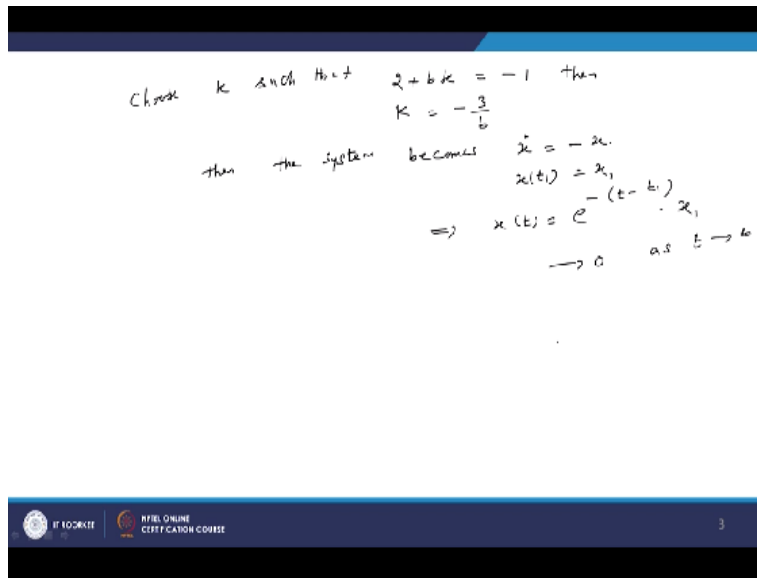 Choose k such that 2 + bk = -1 then
K = -3/b
then the system becomes ẋ = -x.
x(t₁) = x₁
⇒ x(t) = e^{-(t-t₁)} · x₁
→ 0 as t → ∞
IIT ROORKEE
NPTEL ONLINE
CERTIFICATION COURSE
3